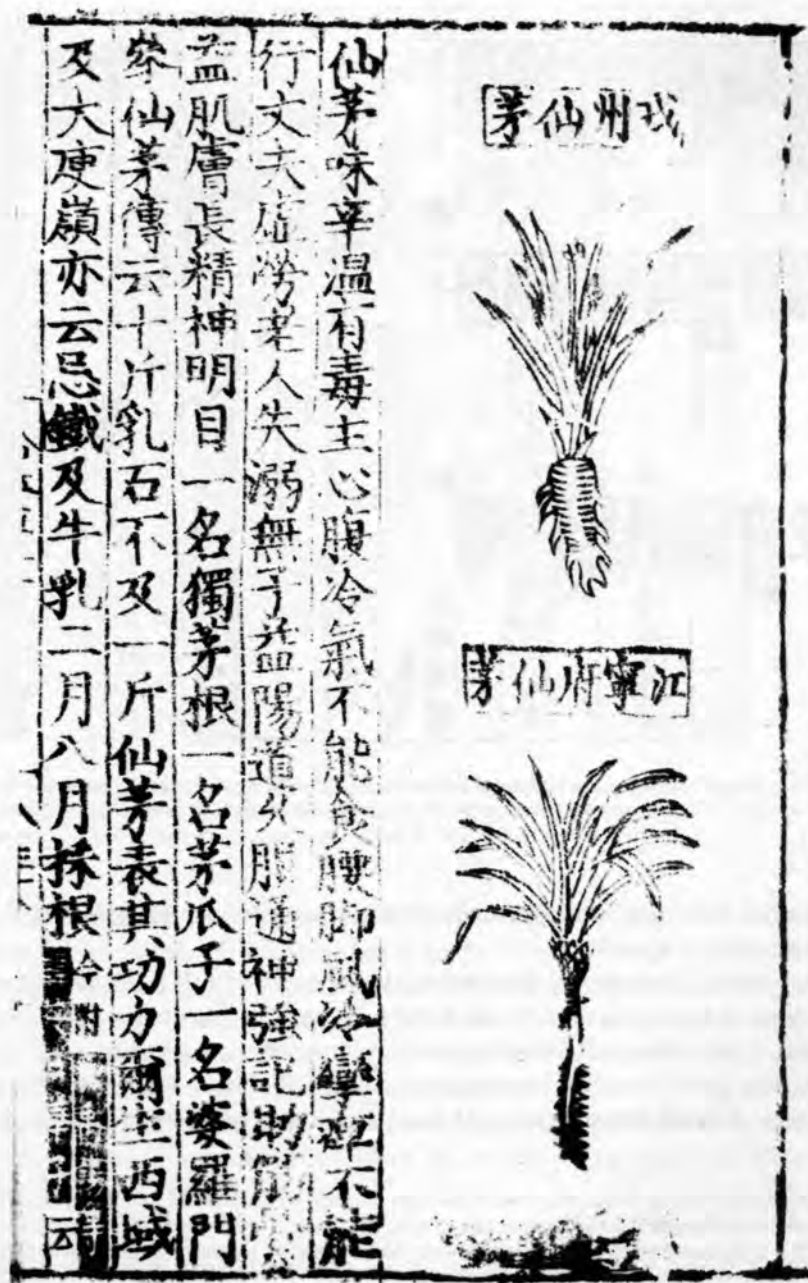 戎州仙茅
江寧府仙茅
仙茅味辛溫有毒主心腹冷氣不能食腰脚風冷攣痹不能
行丈夫虛勞老人失溺無子益陽道久服通神強記助筋骨
益肌膚長精神明目一名獨茅根一名茅瓜子一名婆羅門
參仙茅傳云十斤乳石不及一斤仙茅表其功力爾生西域
及大庾嶺亦云忌鐵及牛乳二月八月採根